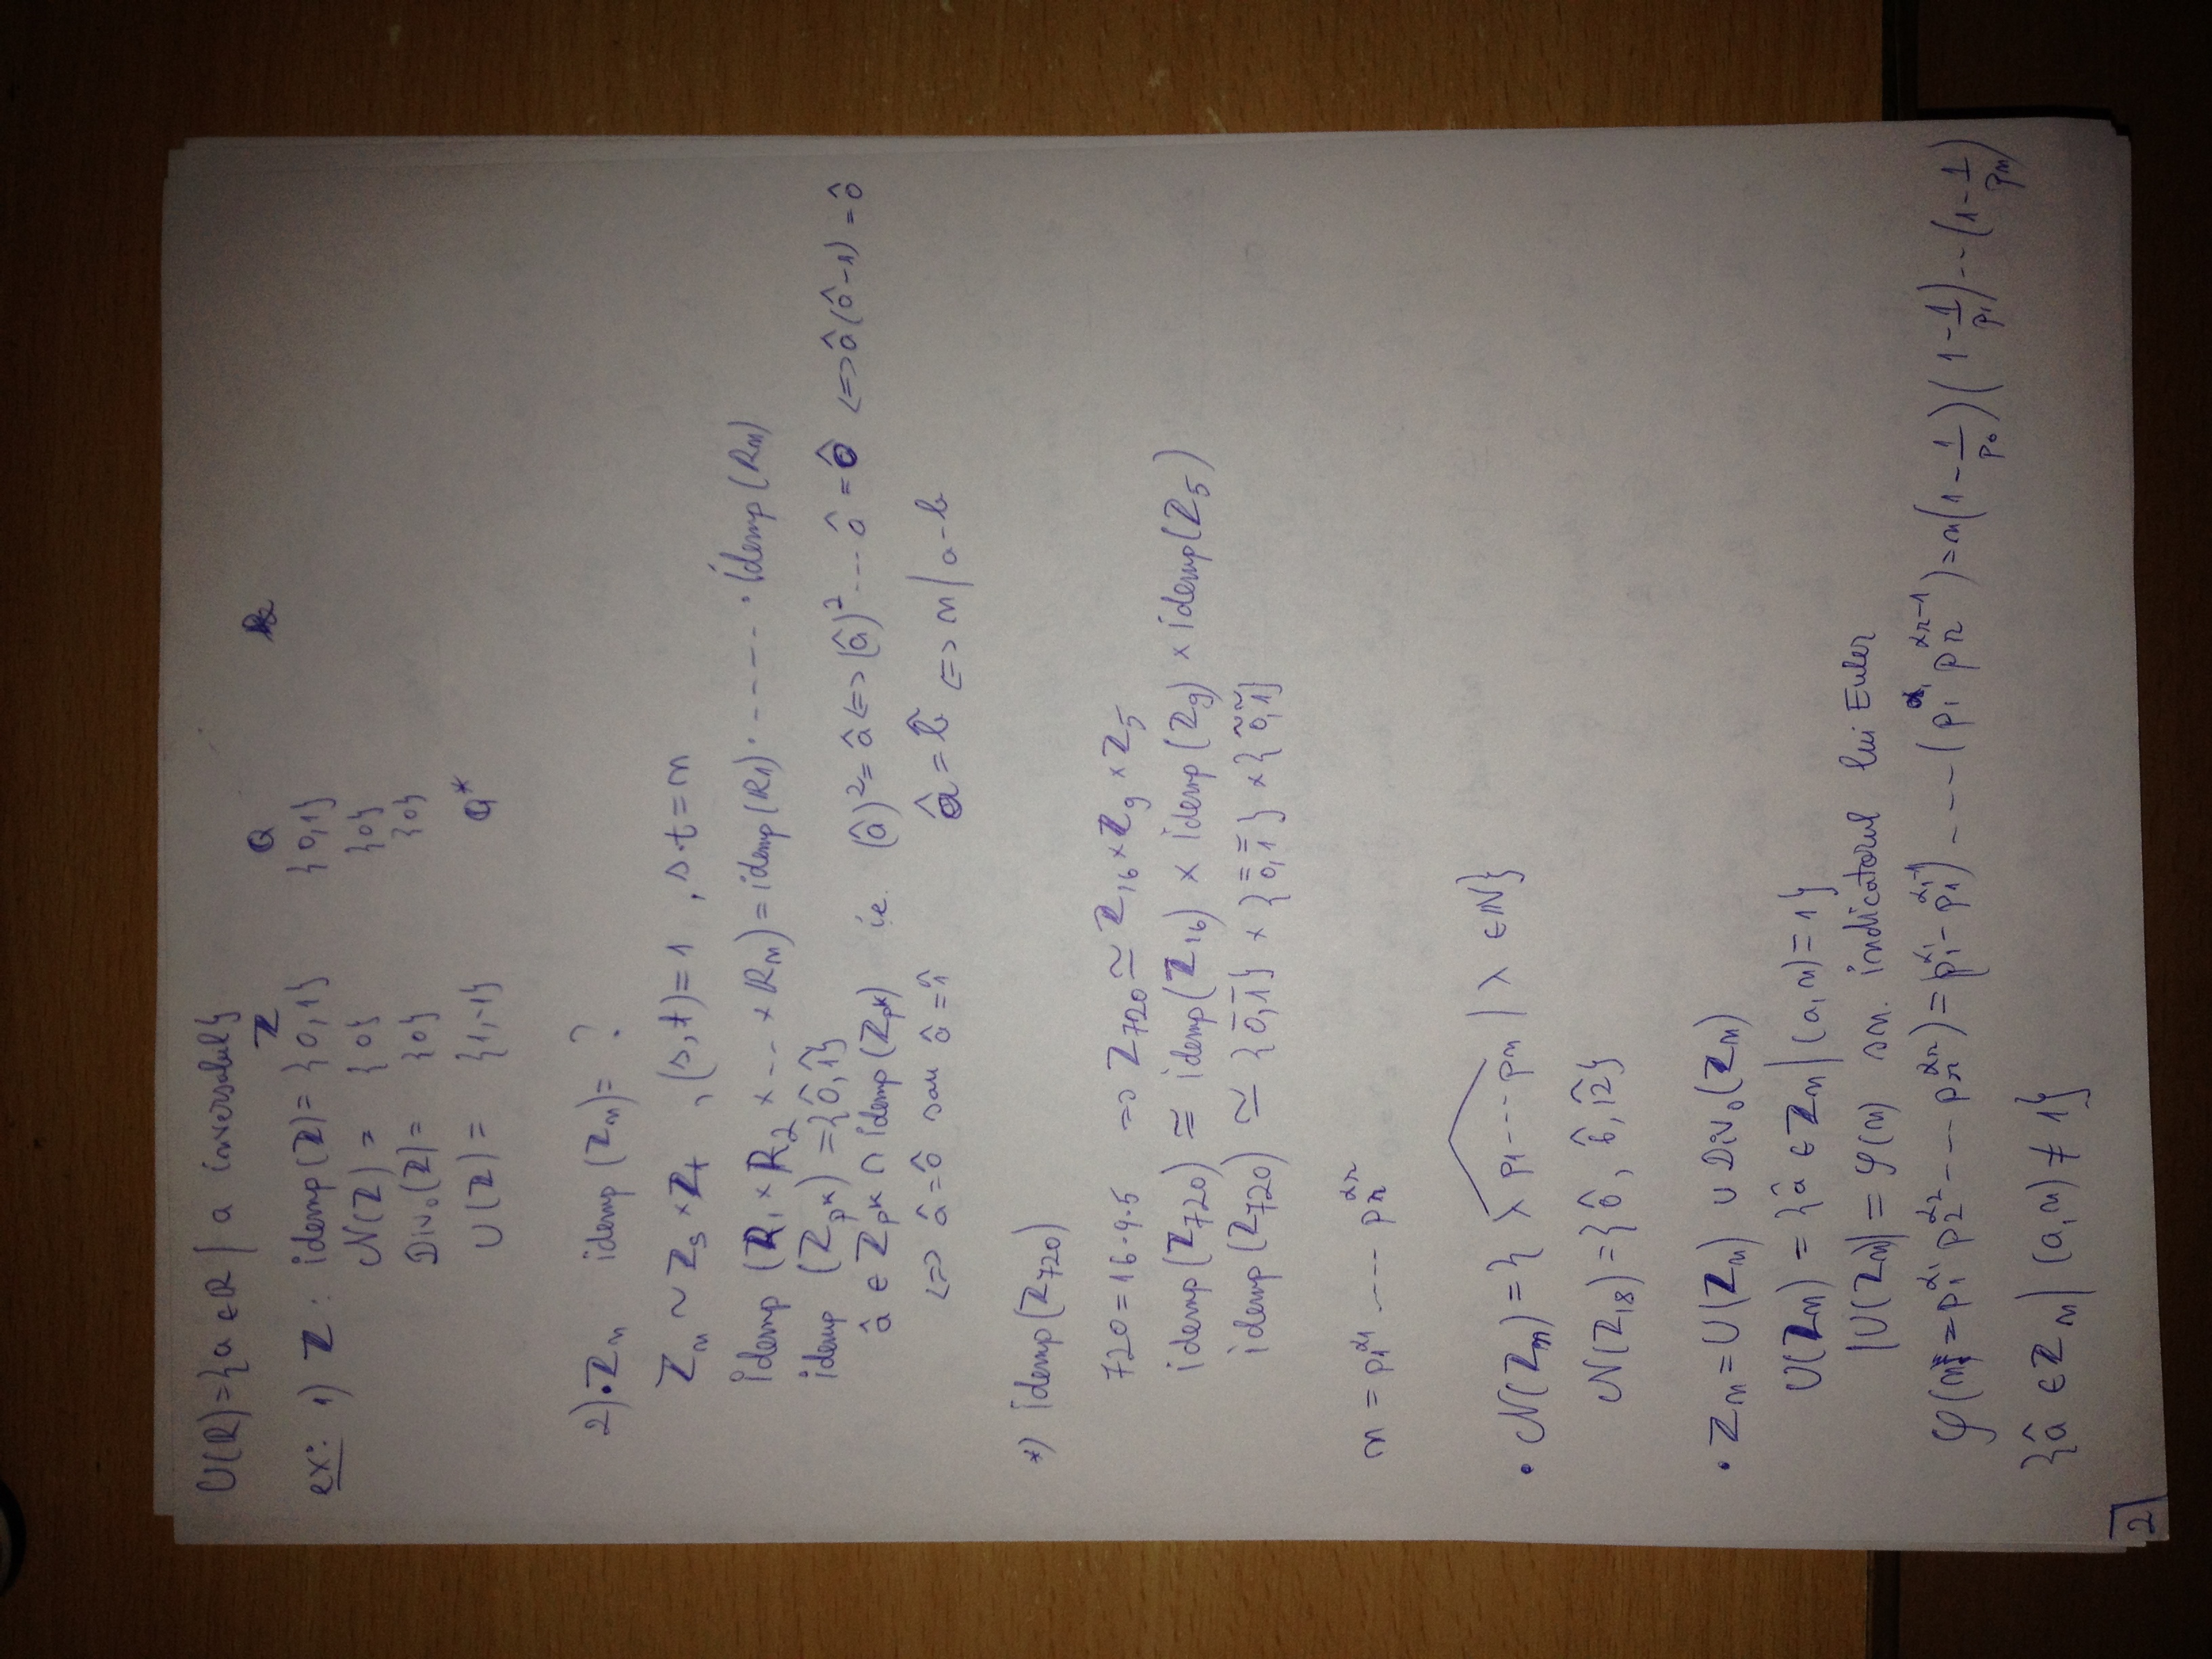 U(R)={a∈R | a inversabil}
ℤ ℚ
ex: 1) ℤ: idemp(ℤ)= {0,1} {0,1}
N(ℤ) = {0} {0}
Div₀(ℤ)= {0} {0}
U(ℤ) = {1,-1} ℚ*
2)•ℤₙ idemp(ℤₙ)= ?
ℤₙ ~ ℤₛ×ℤₜ , (s,t)=1 , s·t=n
Idemp (R₁×R₂×...×Rₙ)=idemp(R1)·-----·Idemp(Rₙ)
idemp (ℤ_{p^k}) ={0̂,1̂}
â ∈ ℤ_{p^k} ∩ Idemp(ℤ_{p^k}) ie. (â)²=â<=>(â)²--- â =0̂ <=>â(â-1)=0̂
<=> â=0̂ sau â=1̂ â=b̂ <=> n|a-b
*) Idemp(ℤ₇₂₀)
720=16·9·5 => ℤ₇₂₀≃ℤ₁₆×ℤ₉×ℤ₅
idemp(ℤ₇₂₀) ≅ idemp(ℤ₁₆) × idemp(ℤ₉) × idemp(ℤ₅)
idemp(ℤ₇₂₀) ≃ {0̄,1̄} × {0̿,1̿} × {0̃,1̃}
n = p₁^{α₁} ---- p_r^{α_r}
• N(ℤₙ)={ \widehat{λ p₁---pₙ} | λ ∈ℕ}
N(ℤ₁₈)={0̂, 6̂, \widehat{12}}
• ℤₙ=U(ℤₙ) ∪ Div₀(ℤₙ)
U(ℤₙ) = {â ∈ ℤₙ | (a,n)=1}
|U(ℤₙ)| = φ(n) s.n. indicatorul lui Euler
φ(n=p₁^{α₁} p₂^{α₂} --- p_r^{α_r})=(p₁^{α₁}-p₁^{α₁-1}) ---(p₁^{α₁} p_r^{α_r-1})=n(1-1/p₀)(1-1/p₁)--(1-1/pₙ)
{â ∈ℤₙ | (a,n) ≠ 1}
2